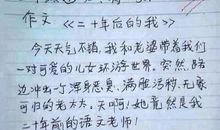 作文
《二十年后的我》
今天天气不错，我和老婆带着我们
一对可爱的儿女环游世界，突然，路
边冲出一个浑身恶臭、满脸污秽、无家
可归的老太太，天啊！她竟然是我
二十年前的语文老师！